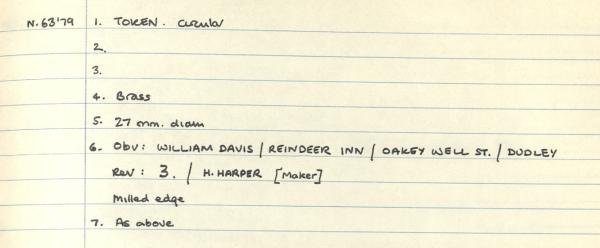 N.63'79 1. TOKEN. Circular
2.
3.
4. Brass
5. 27 mm. diam
6. Obv: WILLIAM DAVIS / REINDEER INN / OAKEY WELL ST. / DUDLEY
Rev: 3. / H. HARPER [Maker]
Milled edge
7. As above